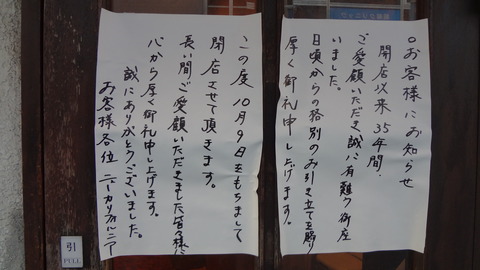 ○お客様にお知らせ
開店以来35年間.
ご愛顧いただき誠に有難う御座
いました。
日頃からの格別のお引き立てを賜り
厚く御礼申し上げます。
この度10月9日をもちまして
閉店させて頂きます。
長い間ご愛顧いただきました皆々様に
心から厚く御礼申し上げます。
誠にありがとうございました。
お客様各位 ニューカリフォルニア
引
PULL